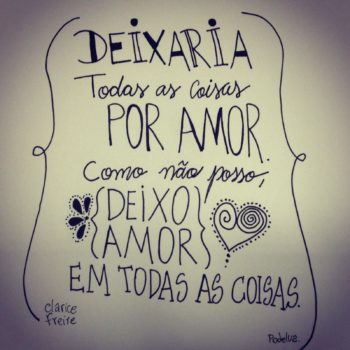 DEIXARIA
Todas as Coisas
POR AMOR.
Como não posso,
{DEIXO}
{AMOR}
EM TODAS AS COISAS.
clarice
freire
Podelua.